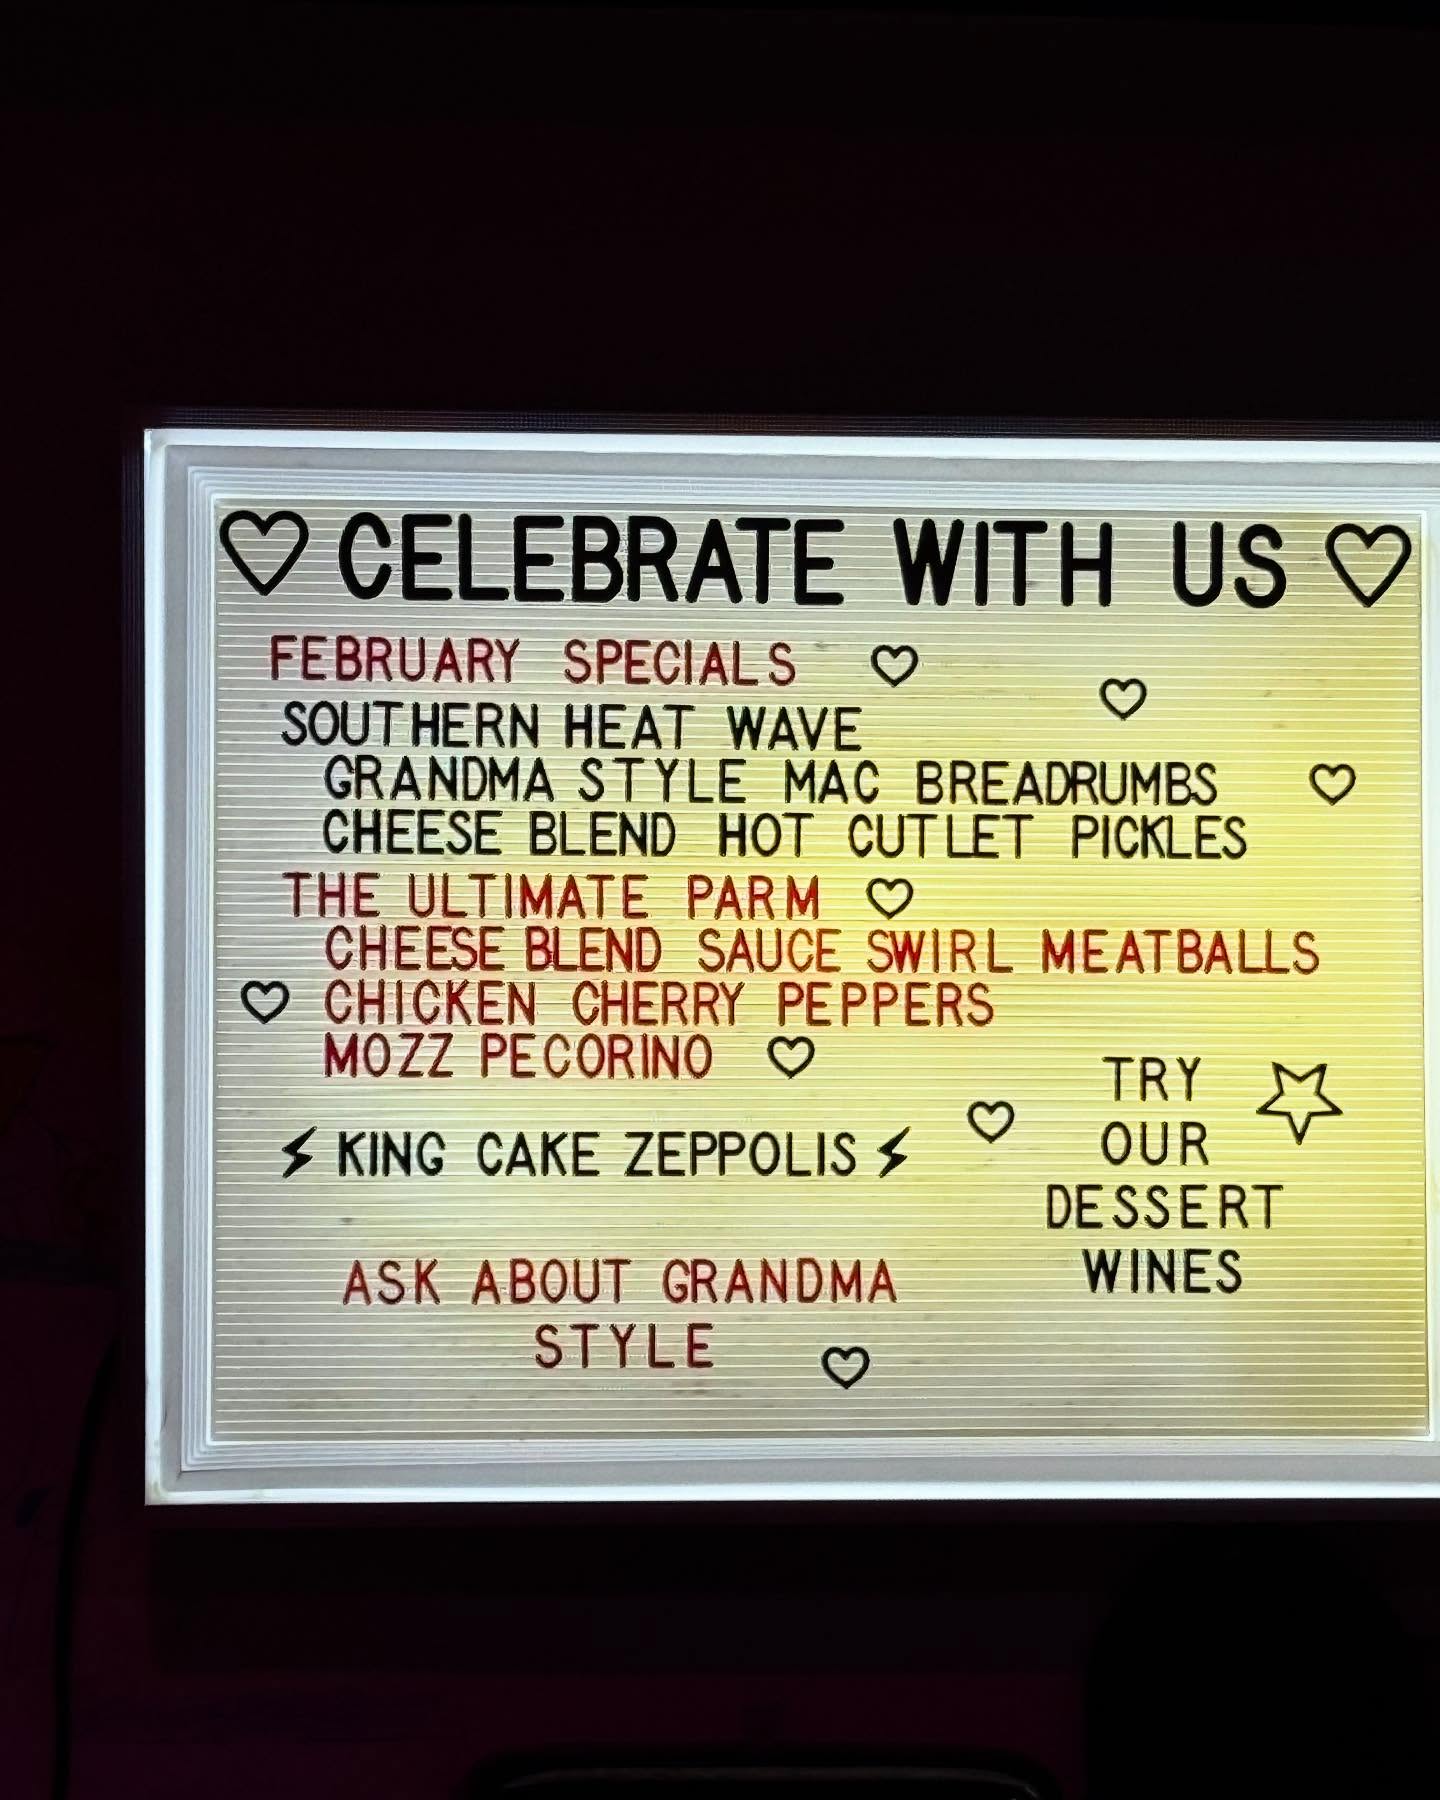 CELEBRATE WITH US
FEBRUARY SPECIALS
SOUTHERN HEAT WAVE
GRANDMA STYLE MAC BREADRUMBS
CHEESE BLEND HOT CUTLET PICKLES
THE ULTIMATE PARM
CHEESE BLEND SAUCE SWIRL MEATBALLS
CHICKEN CHERRY PEPPERS
MOZZ PECORINO
KING CAKE ZEPPOLIS
ASK ABOUT GRANDMA
STYLE
TRY
OUR
DESSERT
WINES